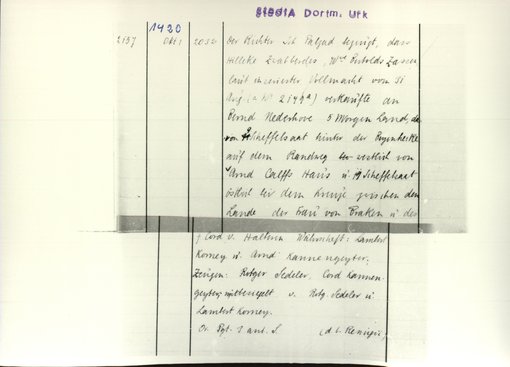 StadtA Dortm. Urk
1430
2137 Okt 1 2032 Der Richter Joh Paljud bezeugt, dass
Hilleke Zvabberdes, Wwe Bertolds Zassen
laut inserierter Vollmacht vom 31
Aug (= Nr 2149a) verkaufte an
Bernd Nederhove 5 Morgen Land, da
von Scheffelsaat hinter der Bogenhecke
auf dem Randweg westlich von
Arnd Calffs Haus u 19 Scheffelsaat
östlich bei dem Kreuze zwischen den
Lande der Frau von Braken u der
Cord v. Haltern Währschaft: Lambert
Korney u. Arnd Kannengeyter.
Zeugen: Rotger Sedeler, Cord Kannen-
geyter; mitbesiegelt v. Rotg. Sedeler u.
Lambert Korney.
Or. Pgt. 3 anh. S (d. b. Remigii)